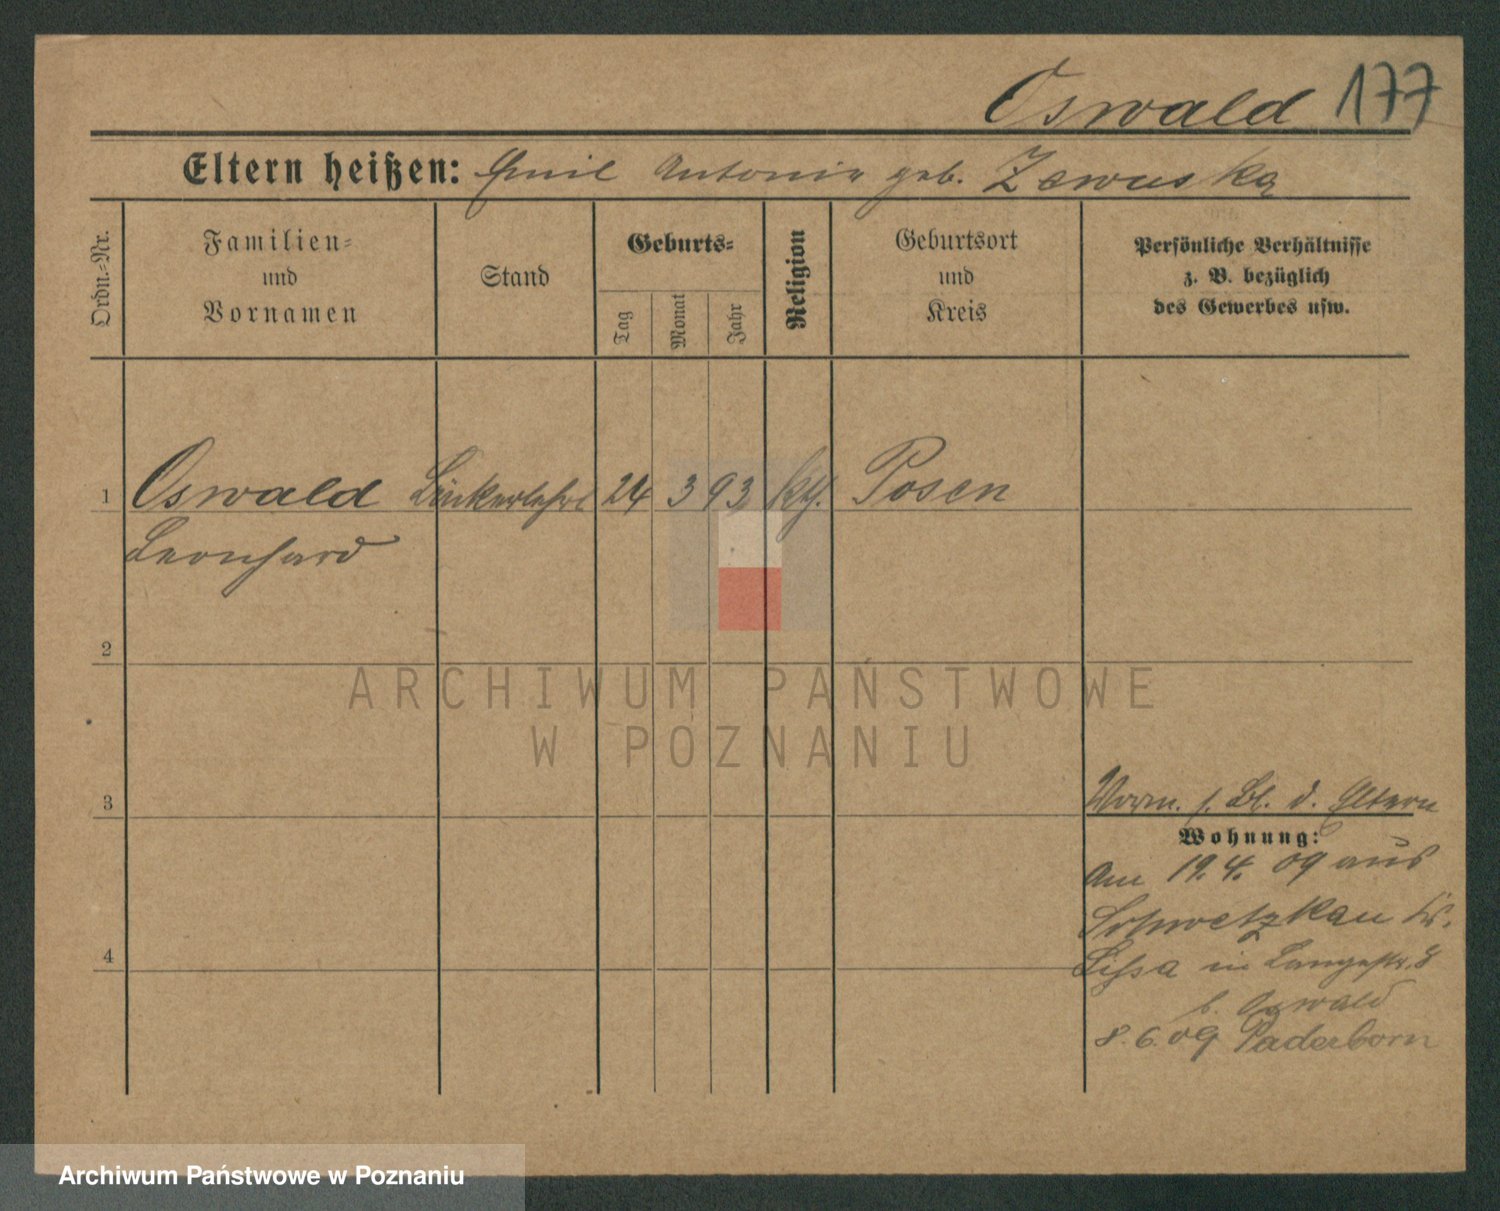 Oswald 177
Eltern heißen: Emil Antonie geb. Zawuska
Ordn.=Nr.
Familien=
und
Vornamen
Stand
Geburts=
Tag
Monat
Jahr
Religion
Geburtsort
und
Kreis
Persönliche Verhältnisse
z. B. bezüglich
des Gewerbes usw.
1 Oswald Bäckerlehrl 24 3 93 kth. Posen
Leonhard
2
3
4
Vorm. s. Bl. d. Eltern
Wohnung:
Am 19.4.09 aus
Schwetzkau Kr.
Lissa in Langestr. 8
b. Oswald
8.6.09 Paderborn
ARCHIWUM PAŃSTWOWE
W POZNANIU
Archiwum Państwowe w Poznaniu